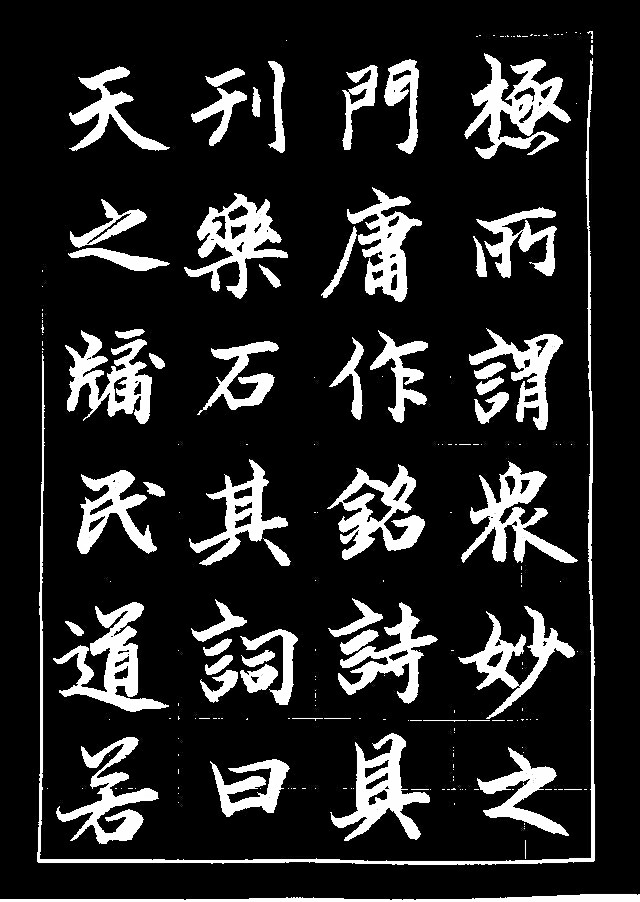 極所謂衆妙之
門庸作銘詩具
刊樂石其詞曰
天之牖民道若